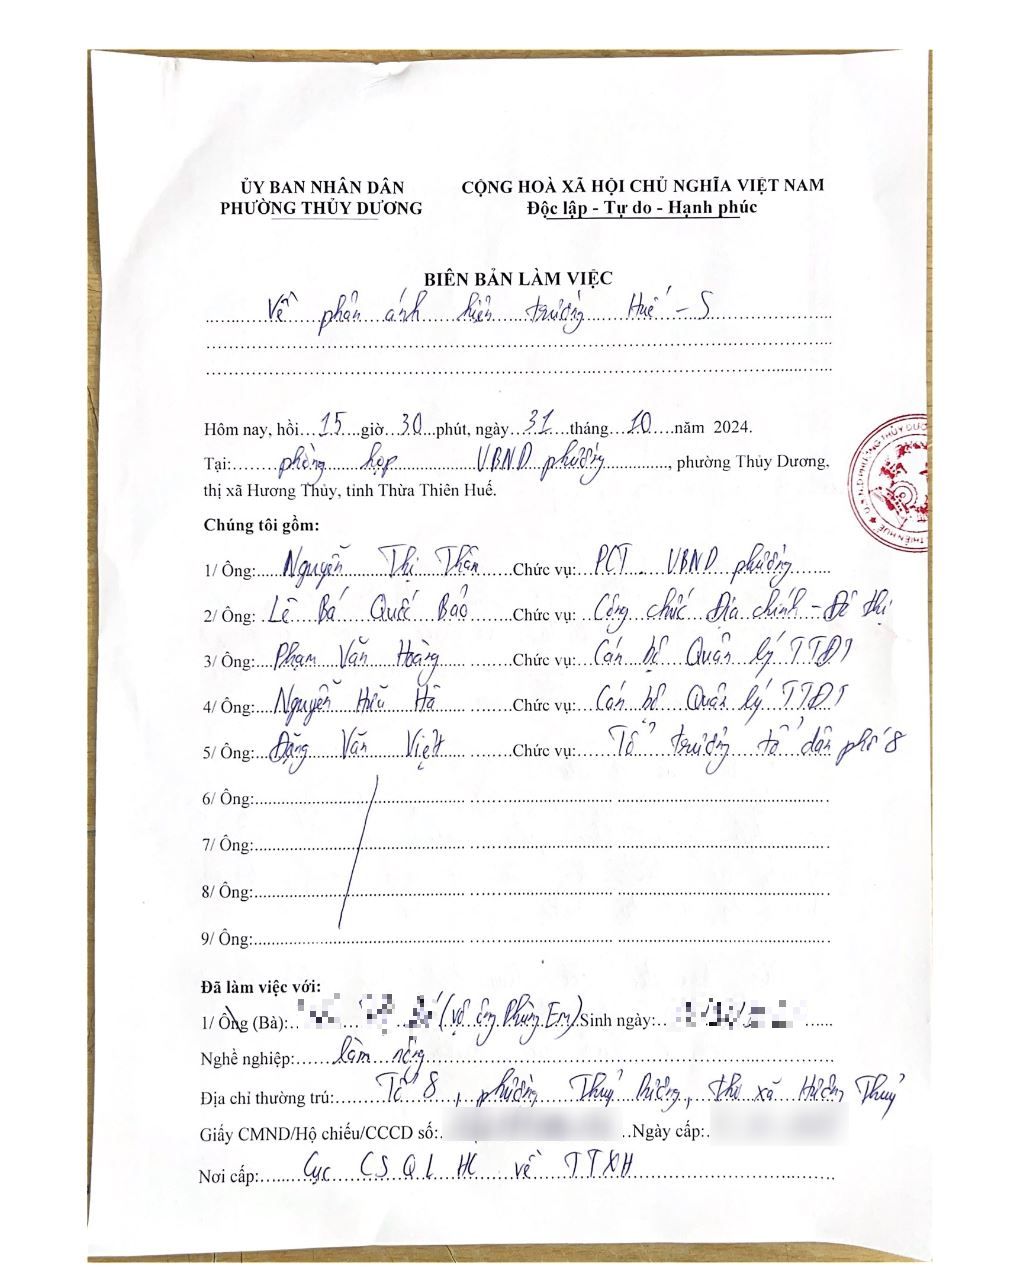 ỦY BAN NHÂN DÂN
PHƯỜNG THỦY DƯƠNG
CỘNG HOÀ XÃ HỘI CHỦ NGHĨA VIỆT NAM
Độc lập - Tự do - Hạnh phúc
BIÊN BẢN LÀM VIỆC
Về phản ánh hiện trường Huế - S
Hôm nay, hồi 15 giờ 30 phút, ngày 31 tháng 10 năm 2024.
Tại: phòng họp UBND phường, phường Thủy Dương,
thị xã Hương Thủy, tỉnh Thừa Thiên Huế.
Chúng tôi gồm:
1/ Ông: Nguyễn Thị Thân Chức vụ: PCT UBND phường
2/ Ông: Lê Bá Quốc Bảo Chức vụ: Công chức Địa chính - Đô thị
3/ Ông: Phạm Văn Hoàng Chức vụ: Cán bộ Quản lý TTĐT
4/ Ông: Nguyễn Hữu Hà Chức vụ: Cán bộ Quản lý TTĐT
5/ Ông: Đặng Văn Việt Chức vụ: Tổ trưởng tổ dân phố 8
6/ Ông:
7/ Ông:
8/ Ông:
9/ Ông:
Đã làm việc với:
1/ Ông (Bà): (vợ ông Phùng Em) Sinh ngày:
Nghề nghiệp: làm nông
Địa chỉ thường trú: Tổ 8, phường Thuỷ Dương, thị xã Hương Thuỷ
Giấy CMND/Hộ chiếu/CCCD số: Ngày cấp:
Nơi cấp: Cục CSQLHC về TTXH